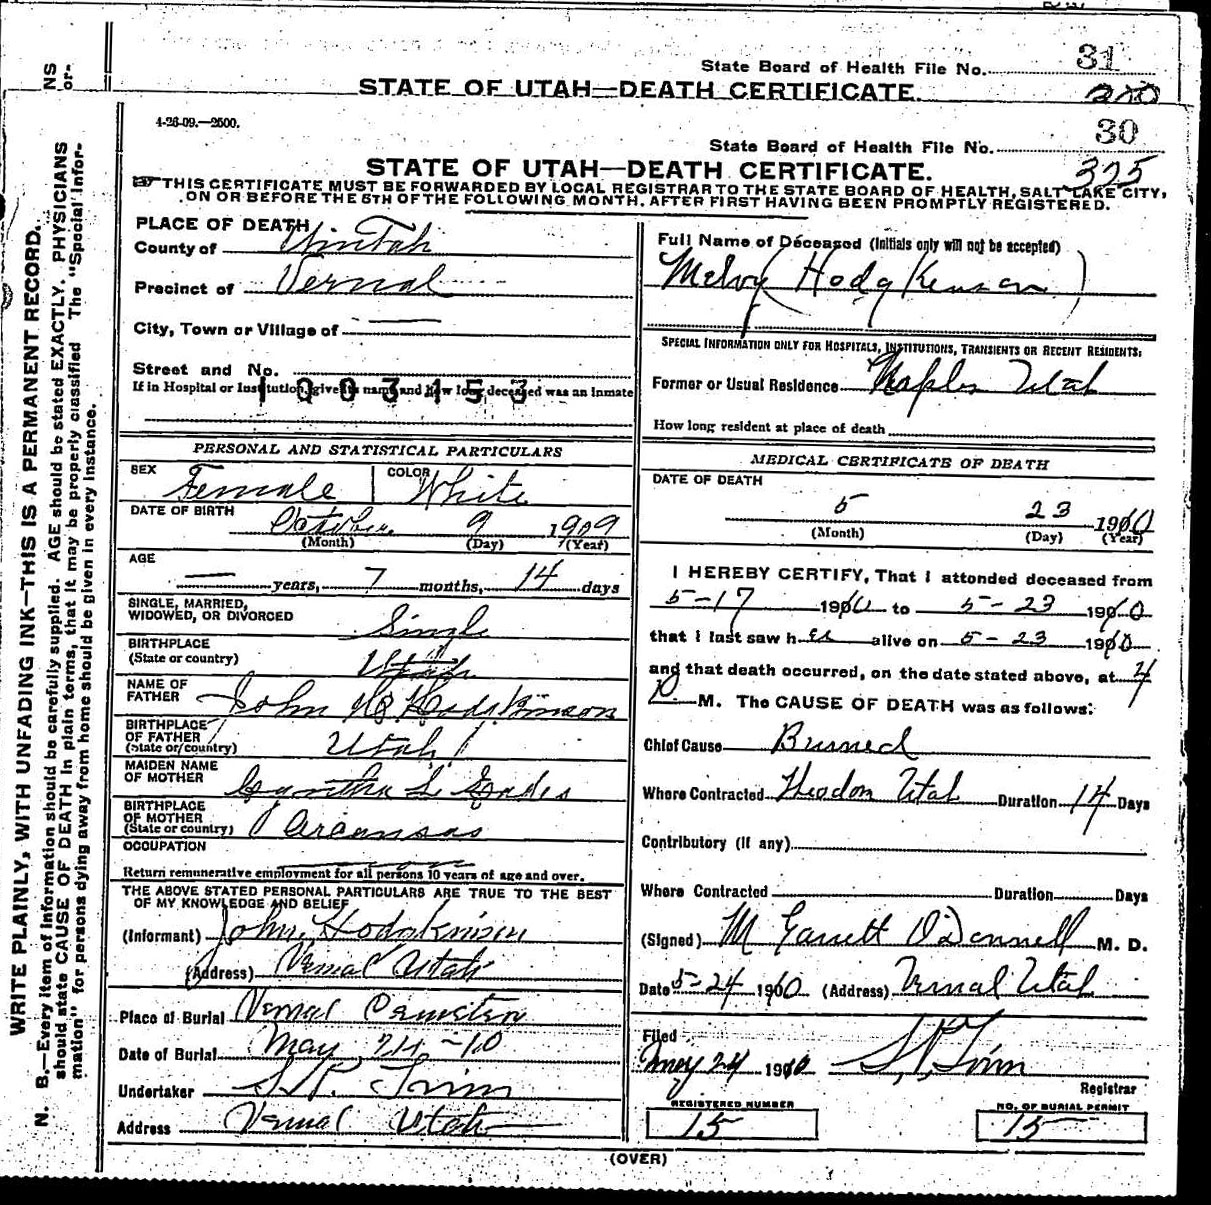 State Board of Health File No. 31
STATE OF UTAH—DEATH CERTIFICATE.
4-26-09.—2500.
State Board of Health File No. 30
STATE OF UTAH—DEATH CERTIFICATE. 325
THIS CERTIFICATE MUST BE FORWARDED BY LOCAL REGISTRAR TO THE STATE BOARD OF HEALTH, SALT LAKE CITY,
ON OR BEFORE THE 5TH OF THE FOLLOWING MONTH, AFTER FIRST HAVING BEEN PROMPTLY REGISTERED.
PLACE OF DEATH
County of Uintah
Precinct of Vernal
City, Town or Village of —
Street and No.
If in Hospital or Institution, give its name and how long deceased was an inmate
1003153
PERSONAL AND STATISTICAL PARTICULARS
SEX Female COLOR White
DATE OF BIRTH October 9 1909
(Month) (Day) (Year)
AGE
— years, 7 months, 14 days
SINGLE, MARRIED,
WIDOWED, OR DIVORCED Single
BIRTHPLACE
(State or country) Utah
NAME OF
FATHER John Hodgkinson
BIRTHPLACE
OF FATHER
(State or country) Utah
MAIDEN NAME
OF MOTHER
BIRTHPLACE
OF MOTHER
(State or country) Arcansas
OCCUPATION
Return remunerative employment for all persons 10 years of age and over.
THE ABOVE STATED PERSONAL PARTICULARS ARE TRUE TO THE BEST
OF MY KNOWLEDGE AND BELIEF
(Informant) John Hodgkinson
(Address) Vernal Utah
Place of Burial Vernal Cemetery
Date of Burial May 24 -10
Undertaker S.P. Trim
Address Vernal Utah
Full Name of Deceased (Initials only will not be accepted)
Melvy Hodgkenson
SPECIAL INFORMATION ONLY FOR HOSPITALS, INSTITUTIONS, TRANSIENTS OR RECENT RESIDENTS:
Former or Usual Residence Naples Utah
How long resident at place of death
MEDICAL CERTIFICATE OF DEATH
DATE OF DEATH
5 23 1910
(Month) (Day) (Year)
I HEREBY CERTIFY, That I attonded deceased from
5-17 1910 to 5-23 1910
that I last saw her alive on 5-23 1910
and that death occurred, on the date stated above, at 4
P. M. The CAUSE OF DEATH was as follows:
Chief Cause Burned
Where Contracted Utah Duration 14 Days
Contributory (if any)
Where Contracted Duration Days
(Signed) M Garrett O'Donnell M. D.
Date 5-24 1910 (Address) Vernal Utah
Filed
May 24 1910 S.P. Trim
Registrar
REGISTERED NUMBER
15
NO. OF BURIAL PERMIT
15
(OVER)
WRITE PLAINLY, WITH UNFADING INK—THIS IS A PERMANENT RECORD.
N. B.—Every item of information should be carefully supplied. AGE should be stated EXACTLY. PHYSICIANS
should state CAUSE OF DEATH in plain terms, that it may be properly classified The "Special Infor-
mation" for persons dying away from home should be given in every instance.
NS
or-